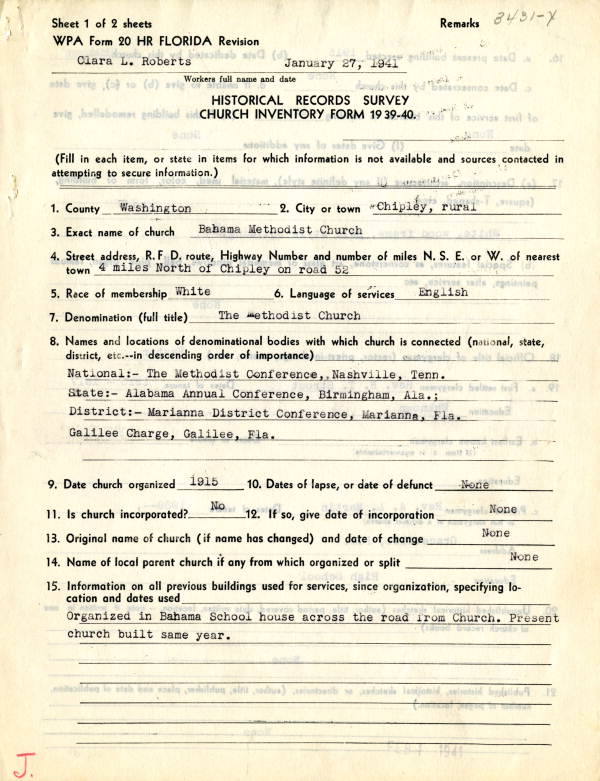 Sheet 1 of 2 sheets
Remarks 3431-X
WPA Form 20 HR FLORIDA Revision
Clara L. Roberts January 27, 1941
Workers full name and date
HISTORICAL RECORDS SURVEY
CHURCH INVENTORY FORM 1939-40.
(Fill in each item, or state in items for which information is not available and sources contacted in
attempting to secure information.)
1. County Washington 2. City or town Chipley, rural
3. Exact name of church Bahama Methodist Church
4. Street address, R. F D. route, Highway Number and number of miles N. S. E. or W. of nearest
town 4 miles North of Chipley on road 52
5. Race of membership White 6. Language of services English
7. Denomination (full title) The Methodist Church
8. Names and locations of denominational bodies with which church is connected (national, state,
district, etc.--in descending order of importance)
National:- The Methodist Conference, Nashville, Tenn.
State:- Alabama Annual Conference, Birmingham, Ala.;
District:- Marianna District Conference, Marianna, Fla.
Galilee Charge, Galilee, Fla.
9. Date church organized 1915 10. Dates of lapse, or date of defunct None
11. Is church incorporated? No 12. If so, give date of incorporation None
13. Original name of church (if name has changed) and date of change None
14. Name of local parent church if any from which organized or split None
15. Information on all previous buildings used for services, since organization, specifying lo-
cation and dates used
Organized in Bahama School house across the road from Church. Present
church built same year.
J.